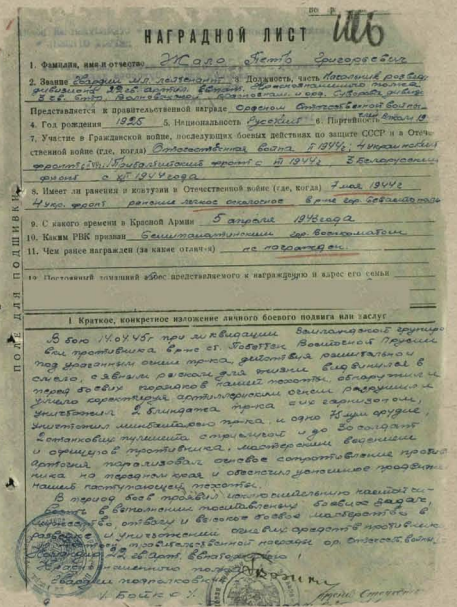 НАГРАДНОЙ ЛИСТ
1. Фамилия, имя и отчество Жало Петр Григорьевич
2. Звание Гвардии мл. лейтенант 3. Должность, часть Начальник развед.
Представляется к правительственной награде Орденом Отечественной войны
4. Год рождения 1925 5. Национальность Русский 6. Партийность
7. Участие в Гражданской войне, последующих боевых действиях по защите СССР и в Отече-
ственной войне (где, когда) Отечественная война 1944г. 4 Украинский
фронт Прибалтийский фронт с 1944г. 3 Белорусский
фронт с 1944 года
8. Имеет ли ранения и контузии в Отечественной войне (где, когда) 7 мая 1944г
4 укр. фронт ранение легкое осколочное в р-не гор. Севастополь
9. С какого времени в Красной Армии 5 апреля 1943 года
10. Каким РВК призван Семипалатинским гор. Военкоматом
11. Чем ранее награжден (за какие отличия) не награжден.
12. Постоянный домашний адрес представляемого к награждению и адрес его семьи
ПОЛЕ ДЛЯ ПОДШИВКИ
I Краткое, конкретное изложение личного боевого подвига или заслуг
В бою 14.04.45г при ликвидации Земландской группиров-
ки противника в р-не Восточной Пруссии
под ураганным огнем пр-ка, действуя решительно и
смело, с явным риском для жизни выдвинулся в
перед боевых порядков нашей пехоты, обнаружил и
умело корректируя артиллерийским огнем разрушил и
уничтожил 2 блиндажа пр-ка с их гарнизоном,
уничтожил минбатарею пр-ка, и одно 75мм орудие,
2 станковых пулемета с прислугой и до 30 солдат
и офицеров противника, мастерским ведением
артогня парализовал огневое сопротивление против-
ника на переднем крае и обеспечил успешное продвижение
нашей наступающей пехоты.
В период боев проявил исключительную настойчи-
вость в выполнении поставленных боевых задач,
мужество, отвагу и высокое боевое мастерство в
разведке и уничтожении огневых средств противника
правительственной награды ор. Отечеств. войны
Краснознаменного полка
гвардии подполковник
/ Бойко /